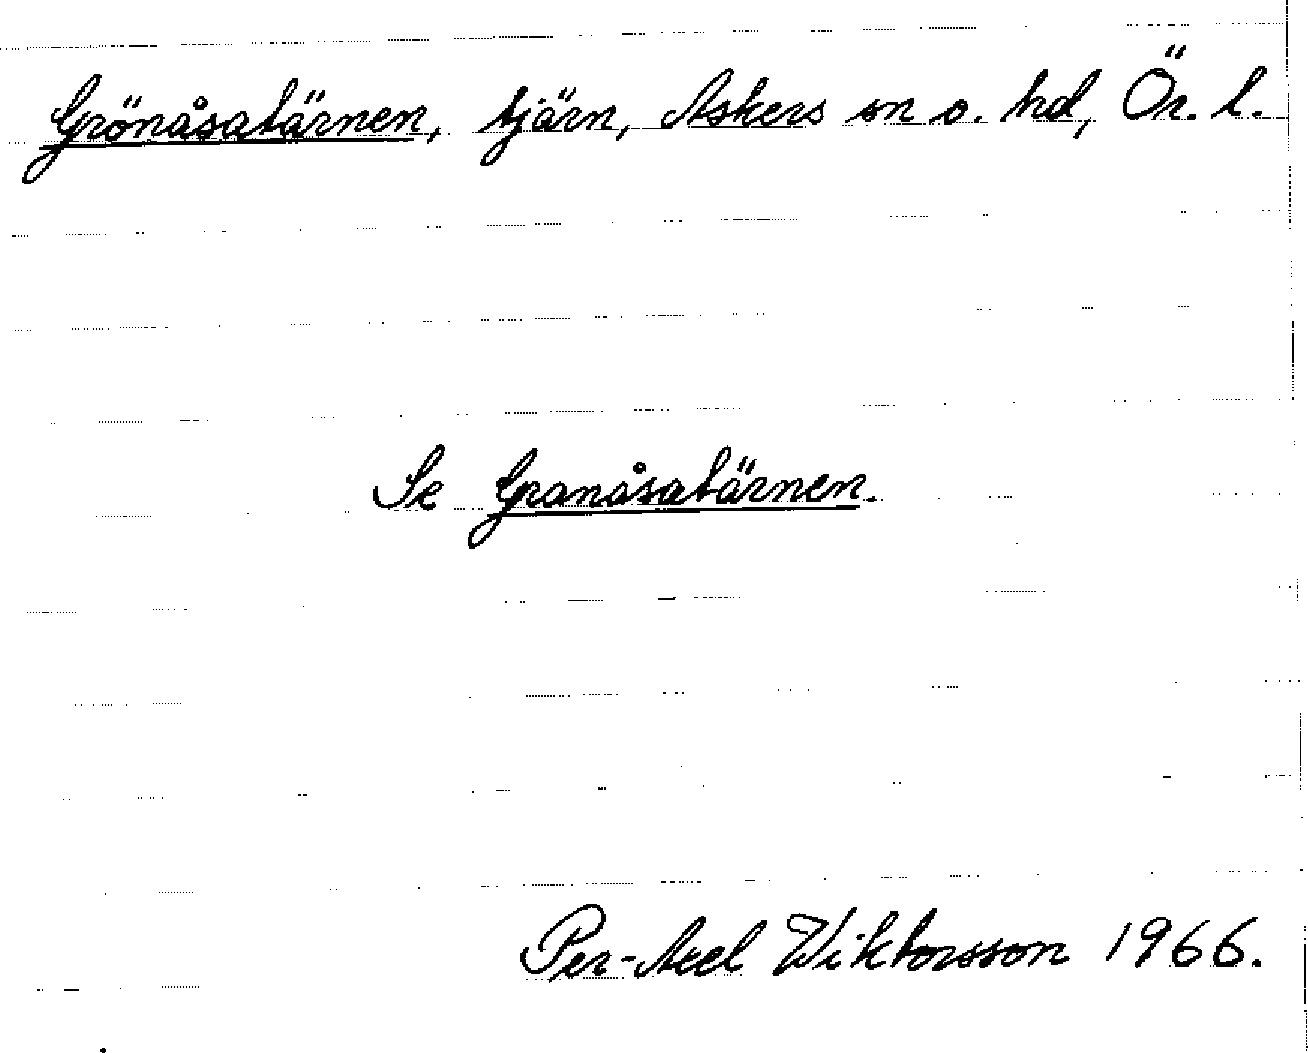 Grönåsatärnen, tjärn, Askers sn o. hd, Ör. l.
Se Granåsatärnen.
Per-Axel Wiktorsson 1966.